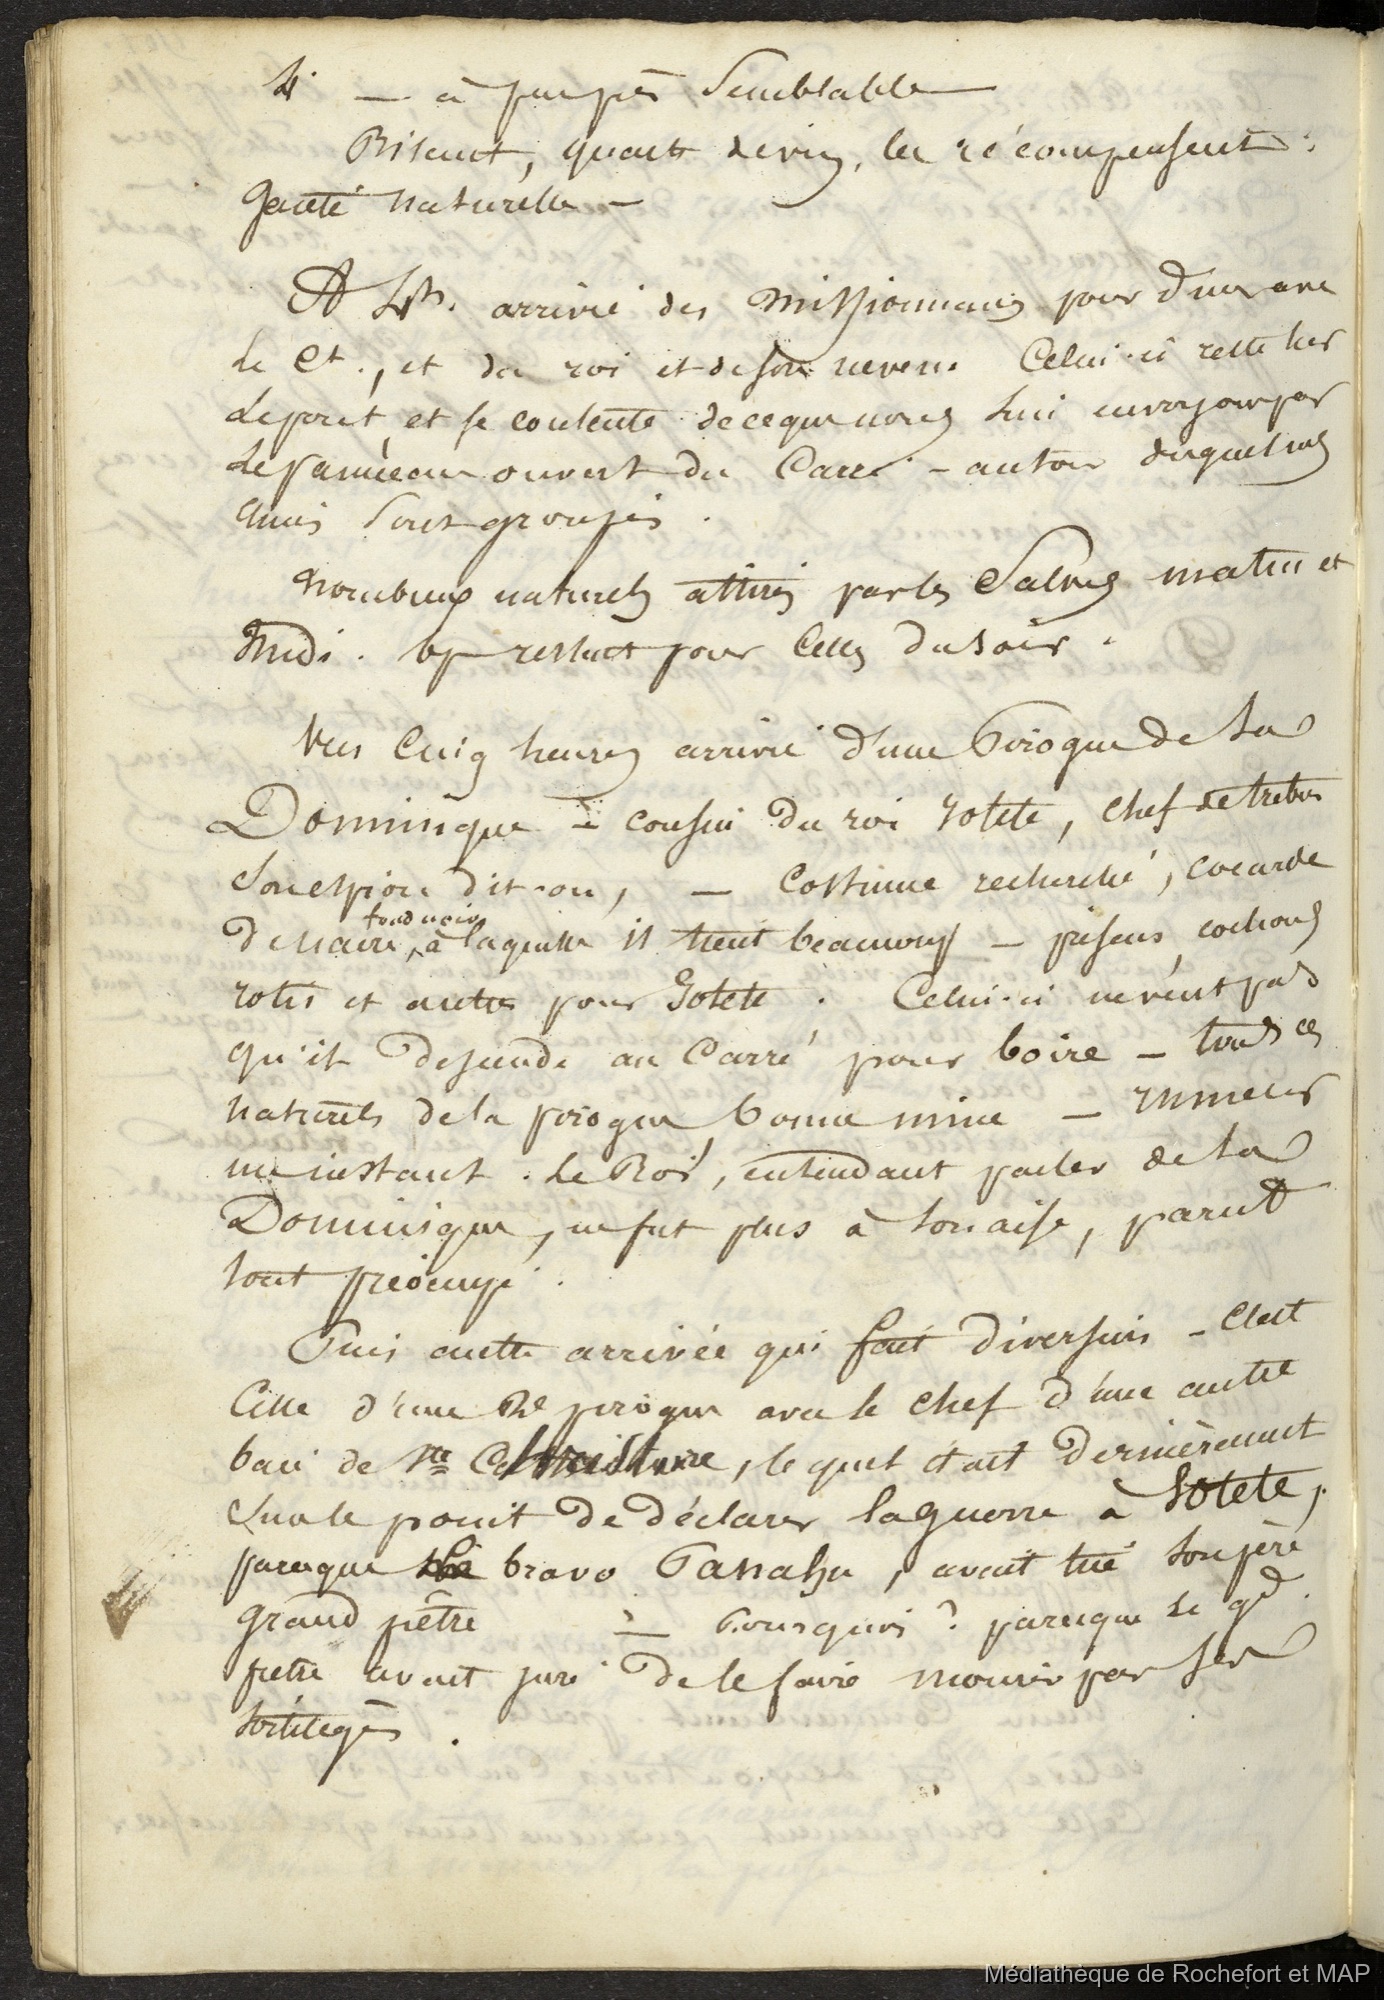 4° — à peu près Semblable —
Biscuit, quart de vin, les récompensent :
Gaieté naturelle —
A 4h. arrivé des Missionnaires pour diner avec
le Ct., et du roi et de son neveu. Celui-ci reste sur
le pont et se contente de ce que nous lui envoyons par
le panneau ouvert du Carré — autour duquel nos
amis sont groupés.
Nombreux naturels attirés par les Salves matin et
Midi. ils restent pour Celles du soir.
Vers Cinq heures arrivée d'une Pirogue de la
Dominique — cousin du roi Iotété, chef de tribu
Son espion dit-on, — Costume recherché, cocarde
de nacre, fond noir à laquelle il tient beaucoup — poissons, cochons
rotis et autres pour Iotété. Celui-ci ne veut pas
qu'il descende au Carré pour boire — tous ces
naturels de la pirogue, bonne mine — rumeur
un instant. Le Roi, entendant parler de la
Dominique, ne fut plus à son aise, parut
tout préoccupé.
Puis autre arrivée qui fait diversion — C'est
Celle d'une 2e pirogue avec le chef d'une autre
baie de Ste Christine, lequel était dernièrement
sur le point de déclarer la guerre à Iotété,
parceque bravo , avait tué son père
Grand prêtre — Pourquoi ? parceque le gd.
prêtre avait juré de le faire mourir par ses
sortilèges.
Médiathèque de Rochefort et MAP